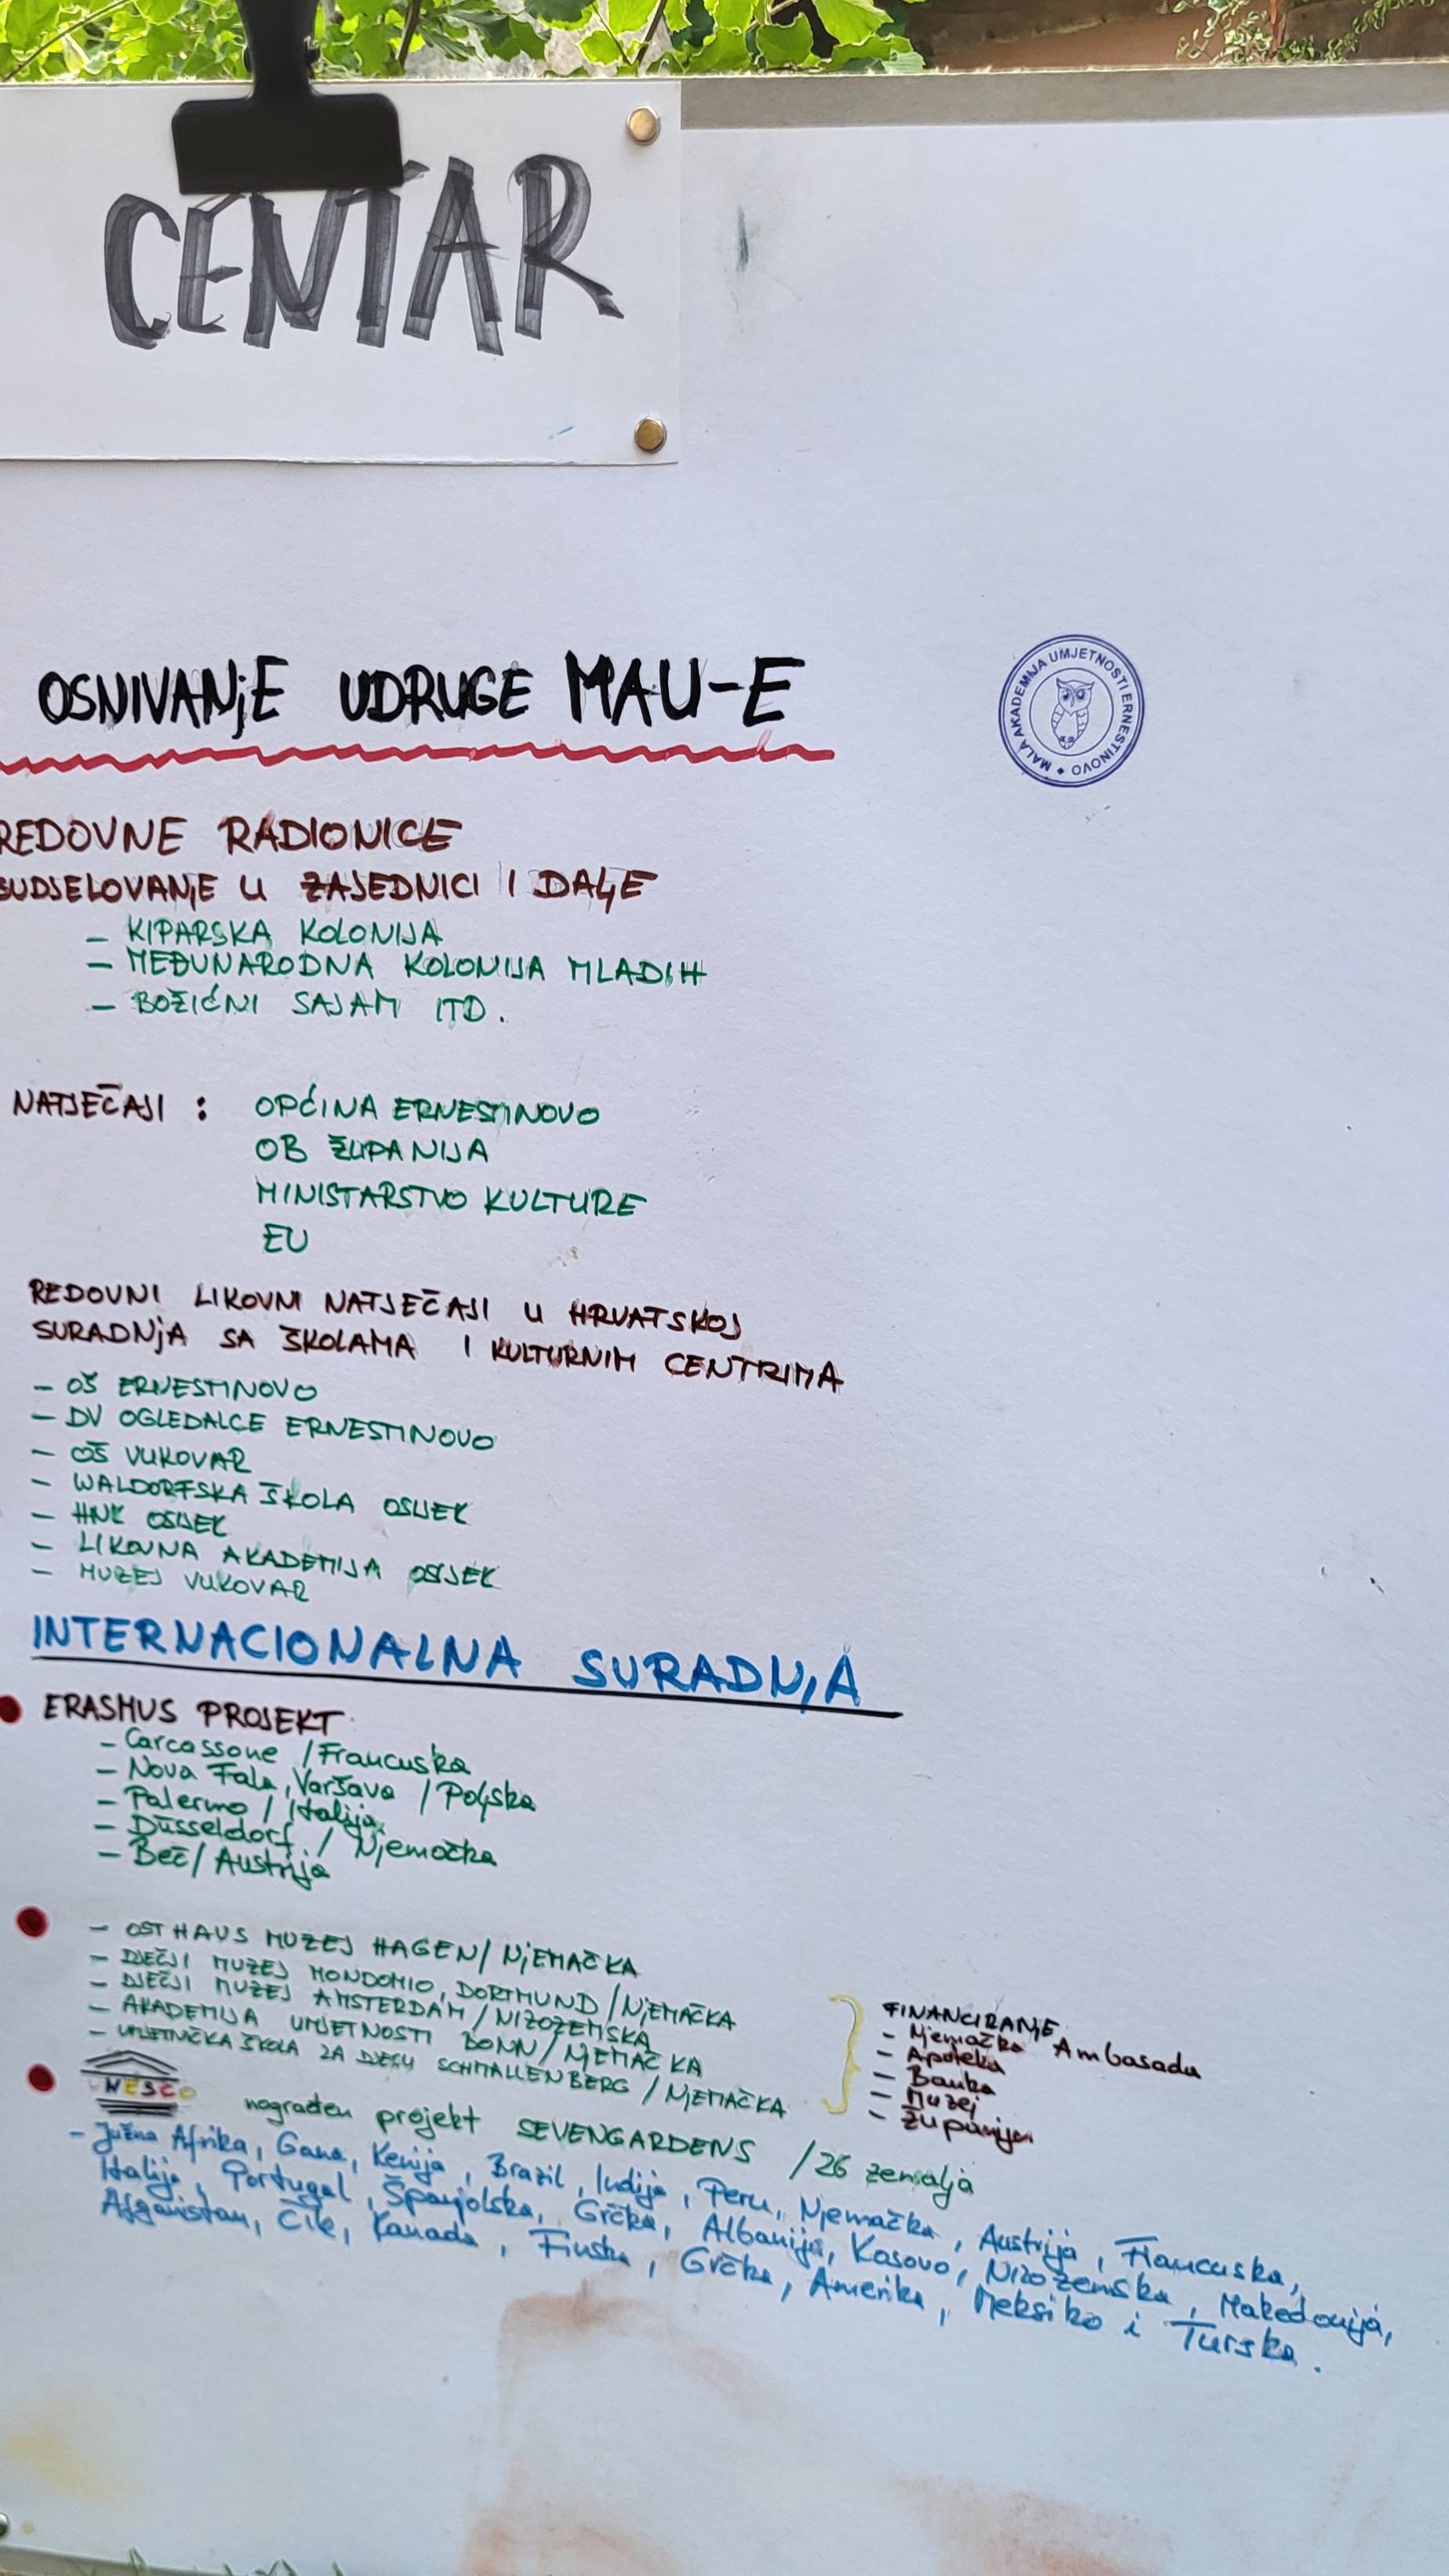 CENTAR
OSNIVANjE UDRUGE MAU-E
MALA AKADEMIJA UMJETNOSTI ERNESTINOVO
REDOVNE RADIONICE
SUDJELOVANjE U ZAJEDNICI I DALjE
- KIPARSKA KOLONIJA
- MEĐUNARODNA KOLONIJA MLADIH
- BOŽIĆNI SAJAM ITD.
NATJEČAJI : OPĆINA ERNESTINOVO
OB ŽUPANIJA
MINISTARSTVO KULTURE
EU
REDOVNI LIKOVNI NATJEČAJI U HRVATSKOJ
SURADNjA SA ŠKOLAMA I KULTURNIM CENTRIMA
- OŠ ERNESTINOVO
- DV OGLEDALCE ERNESTINOVO
- OŠ VUKOVAR
- WALDORFSKA ŠKOLA OSIJEK
- HNK OSIJEK
- LIKOVNA AKADEMIJA OSIJEK
- MUZEJ VUKOVAR
INTERNACIONALNA SURADNjA
ERASMUS PROJEKT
- Carcassone / Francuska
- Nova Fala, Varšava / Poljska
- Palermo / Italija
- Düsseldorf / Njemočka
- Beč / Austrija
- OSTHAUS MUZEJ HAGEN / NjEMAČKA
- DJEČJI MUZEJ MONDOMIO, DORTMUND / NjEMAČKA
- DJEČJI MUZEJ AMSTERDAM / NIZOZEMSKA
- AKADEMIJA UMJETNOSTI BONN / NJEMAČKA
- UMJETNIČKA ŠKOLA ZA DJECU SCHMALLENBERG / NJEMAČKA
FINANCIRANjE
- Njemačka Ambasada
- Apoteka
- Banka
- Muzej
- Županija
UNESCO nagrađen projekt SEVENGARDENS / 26 zemalja
- Južna Afrika, Gana, Kenija, Brazil, Indija, Peru, Njemačka, Austrija, Francuska,
Italija, Portugal, Španjolska, Grčka, Albanija, Kosovo, Nizozemska, Makedonija,
Afganistan, Čile, Kanada, Finska, Grčka, Amerika, Meksiko i Turska.